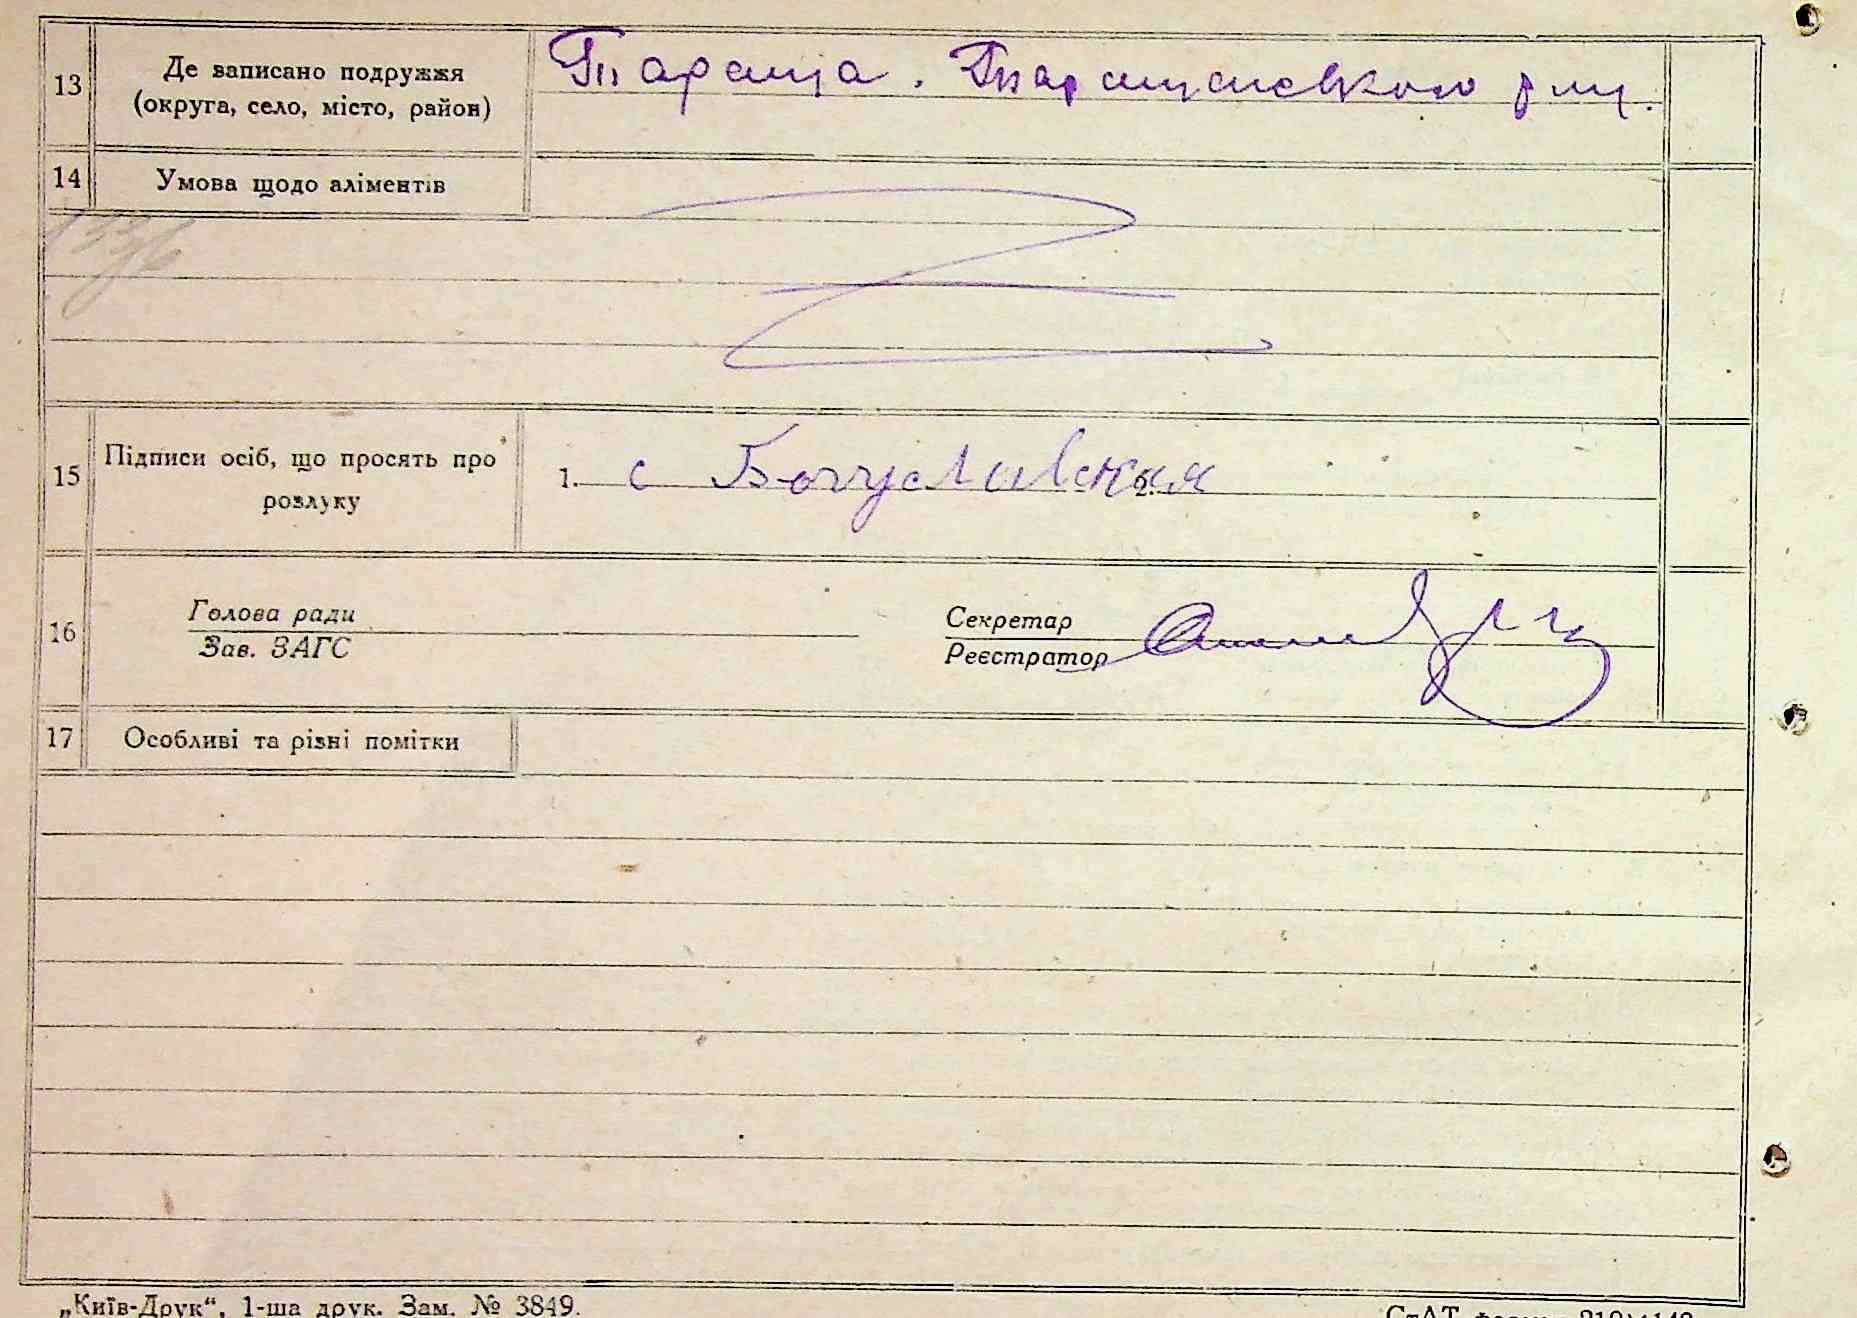 13 Де записано подружжя Тараща. Таращанського
(округа, село, місто, район)
14 Умова щодо аліментів
15 Підписи осіб, що просять про 1. с Богуславская 2.
розлуку
16 Голова ради Секретар
Зав. ЗАГС Реєстратор
17 Особливі та різні помітки
„Київ-Друк“, 1-ша друк. Зам. № 3849.